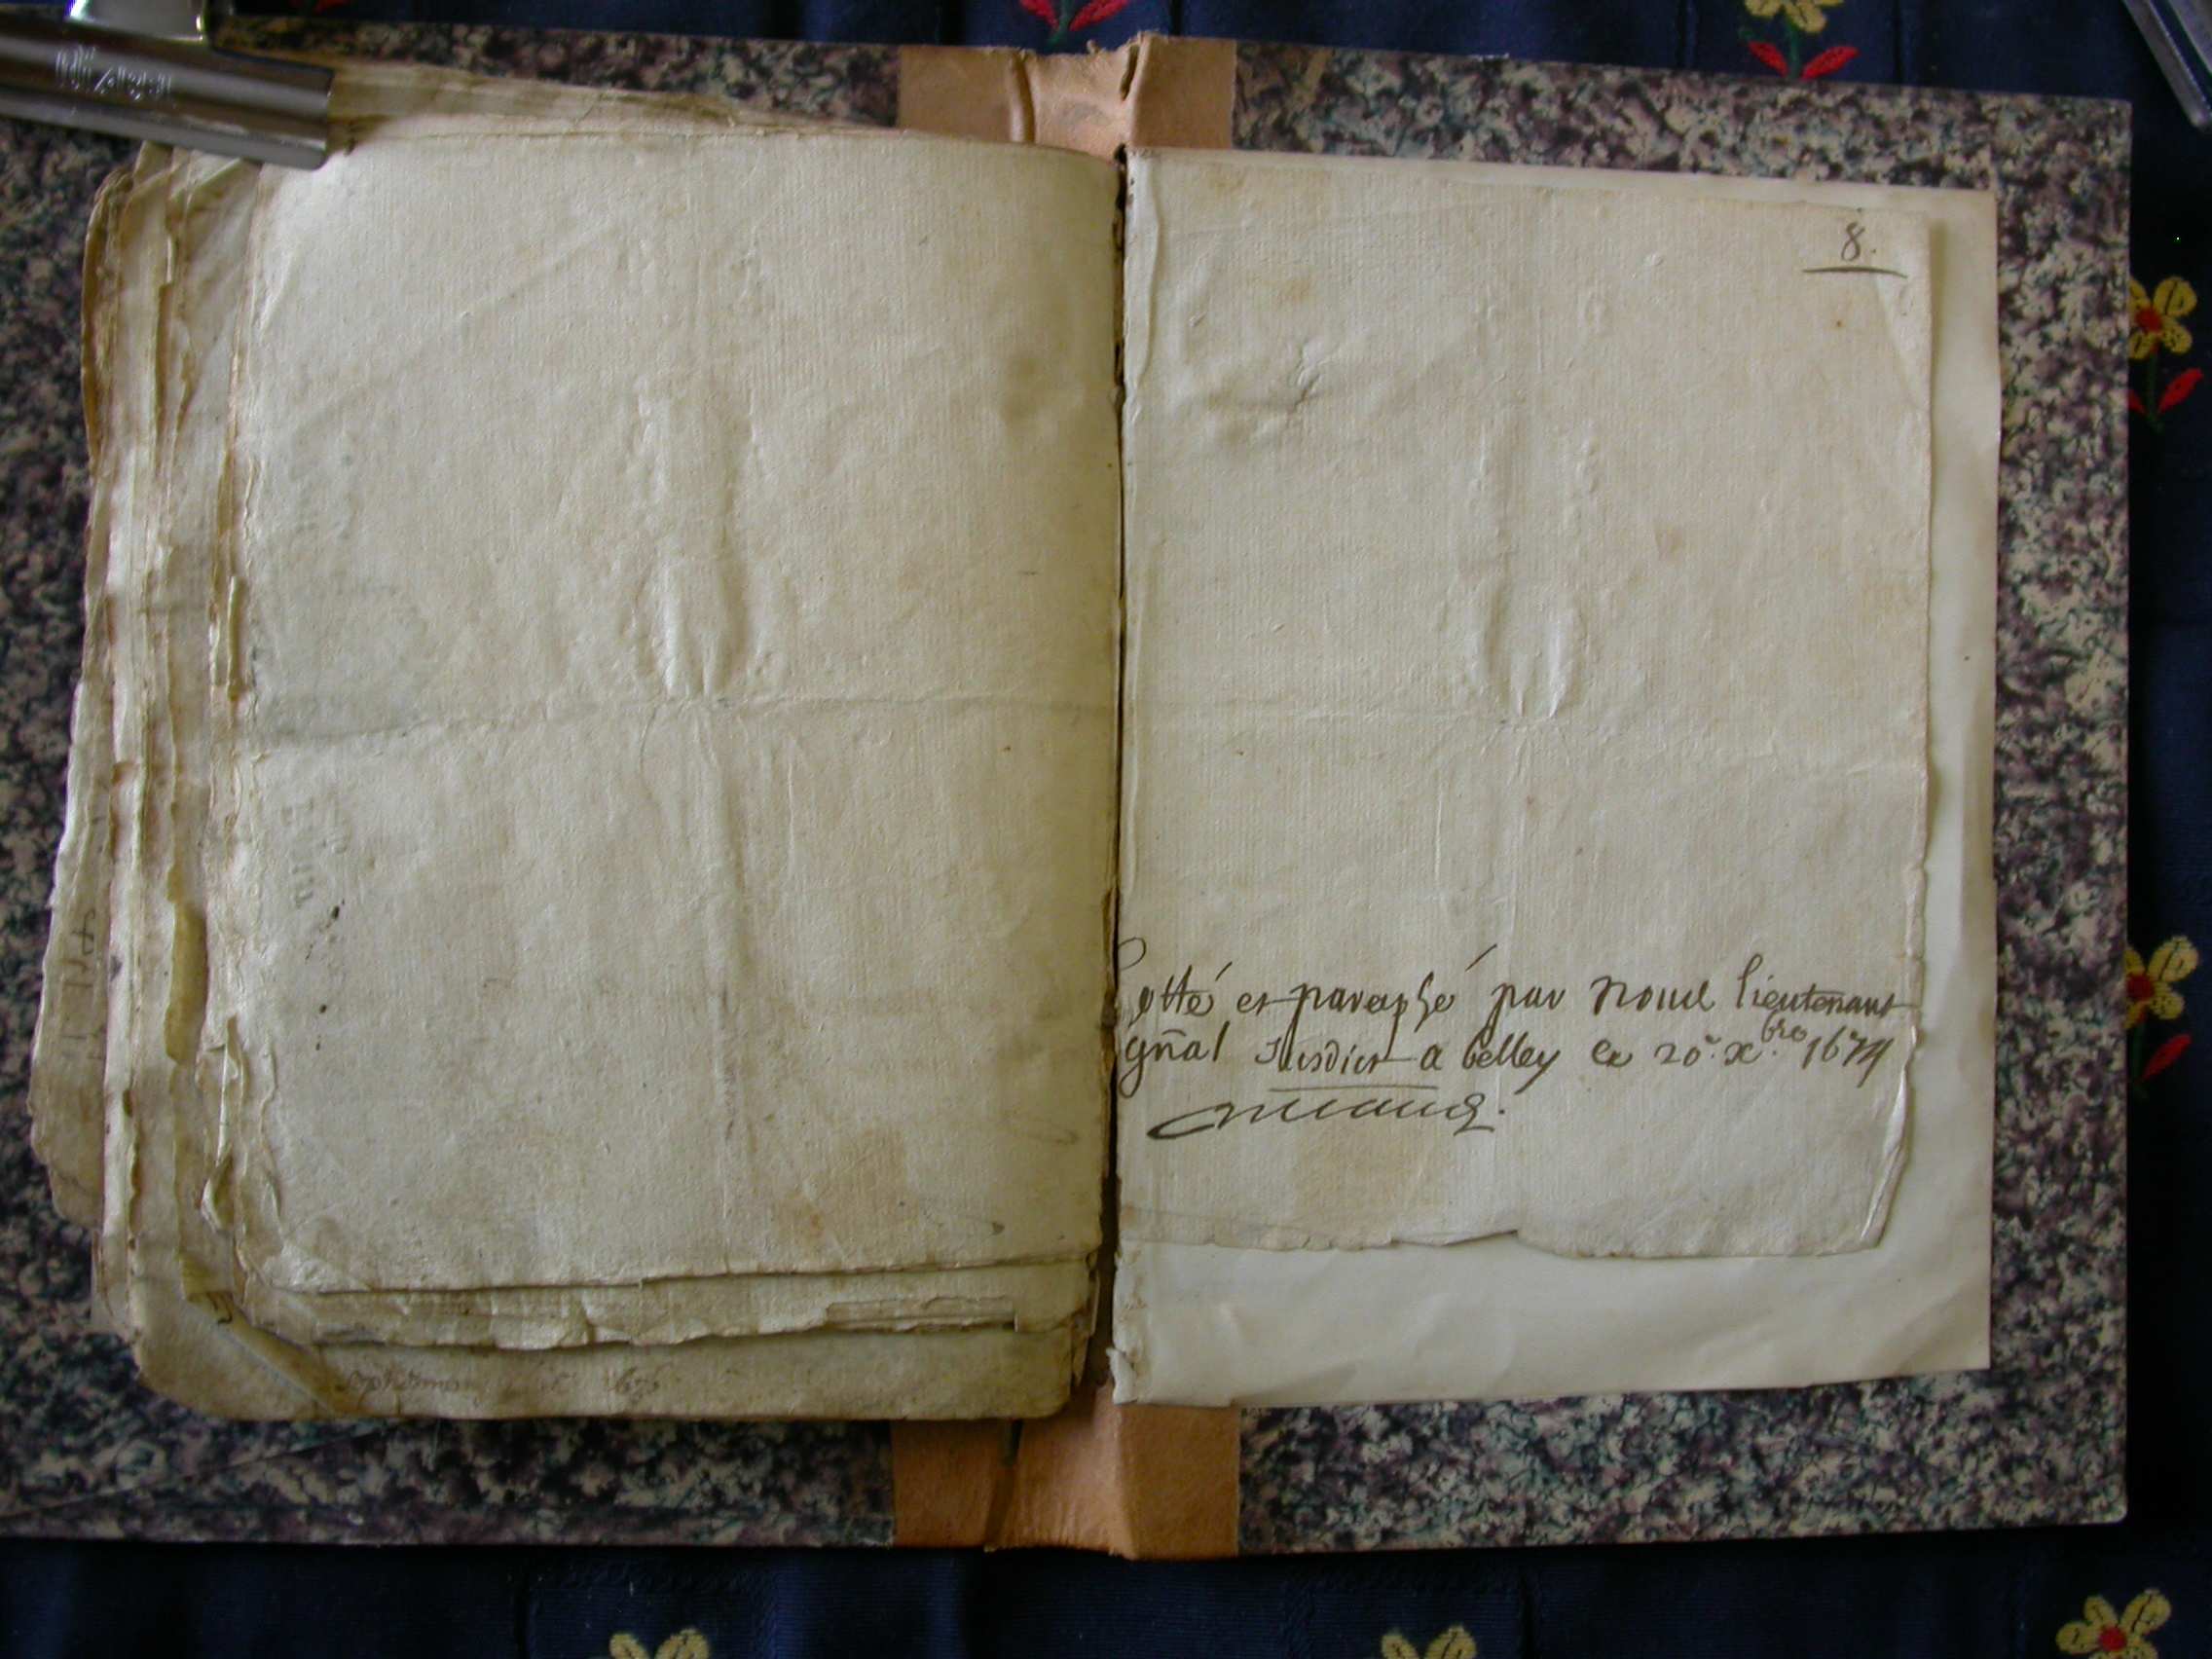 8.
Cotté et paraphé par Nous lieutenant
gñal susdict a belley ce 20e. xbre. 1674